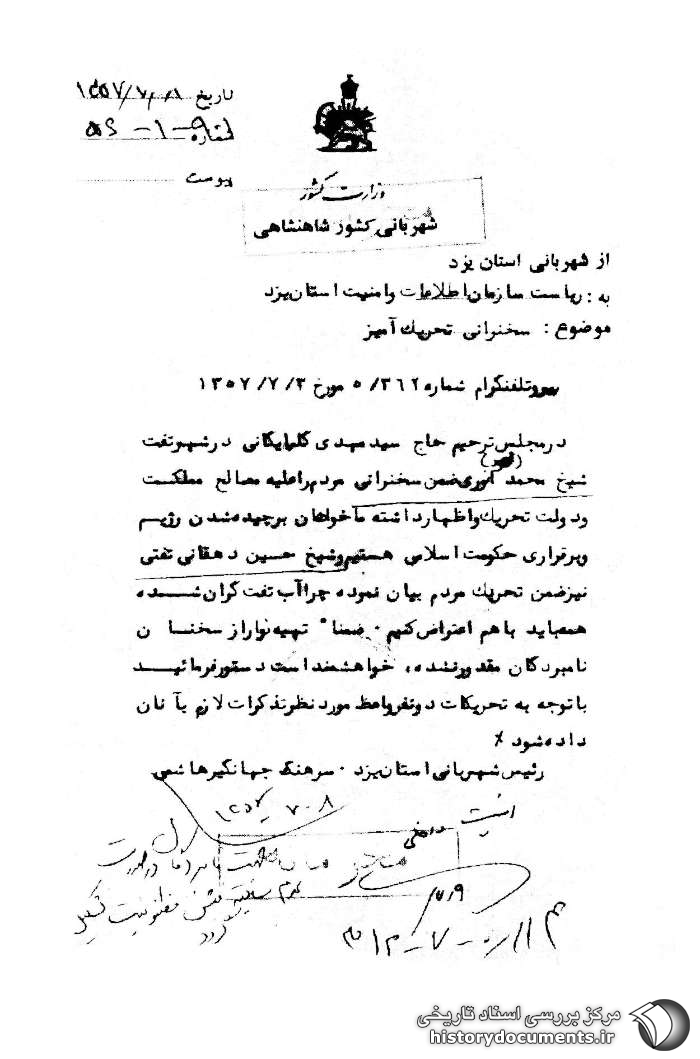 تاریخ ۱۳۵۷/۷/۸
شماره
پیوست
وزارت کشور
شهربانی کشور شاهنشاهی
از شهربانی استان یزد
به : ریاست سازمان اطلاعات وامنیت استان یزد
موضوع : سخنرانی تحریک آمیز
پیروتلفنگرام شماره ۵/۳۶۲ مورخ ۱۳۵۷/۷/۳
درمجلس ترحیم حاج سیدمهدی گلپایگانی درشهرتفت
شیخ محمد انوری ضمن سخنرانی مردم راعلیه مصالح مملکت
ودولت تحریک واظهارداشته ماخواهان برچیده شدن رژیم
وبرقراری حکومت اسلامی هستیم وشیخ حسین دهقانی تفتی
نیزضمن تحریک مردم بیان نموده چراآب تفت گران شده
همه باید باهم اعتراض کنیم ۰ ضمنا" تهیه نواراز سخنان
نامبردگان مقدورنشده ، خواهشمند است دستورفرمائید
باتوجه به تحریکات دونفرواعظ مورد نظرتذکرات لازم بآنان
داده شود ٪
رئیس شهربانی استان یزد ۰ سرهنگ جهانگیرهاشمی
۷۰۰۸
امنیت داخلی
۷/۹
مرکز بررسی اسناد تاریخی
historydocuments.ir